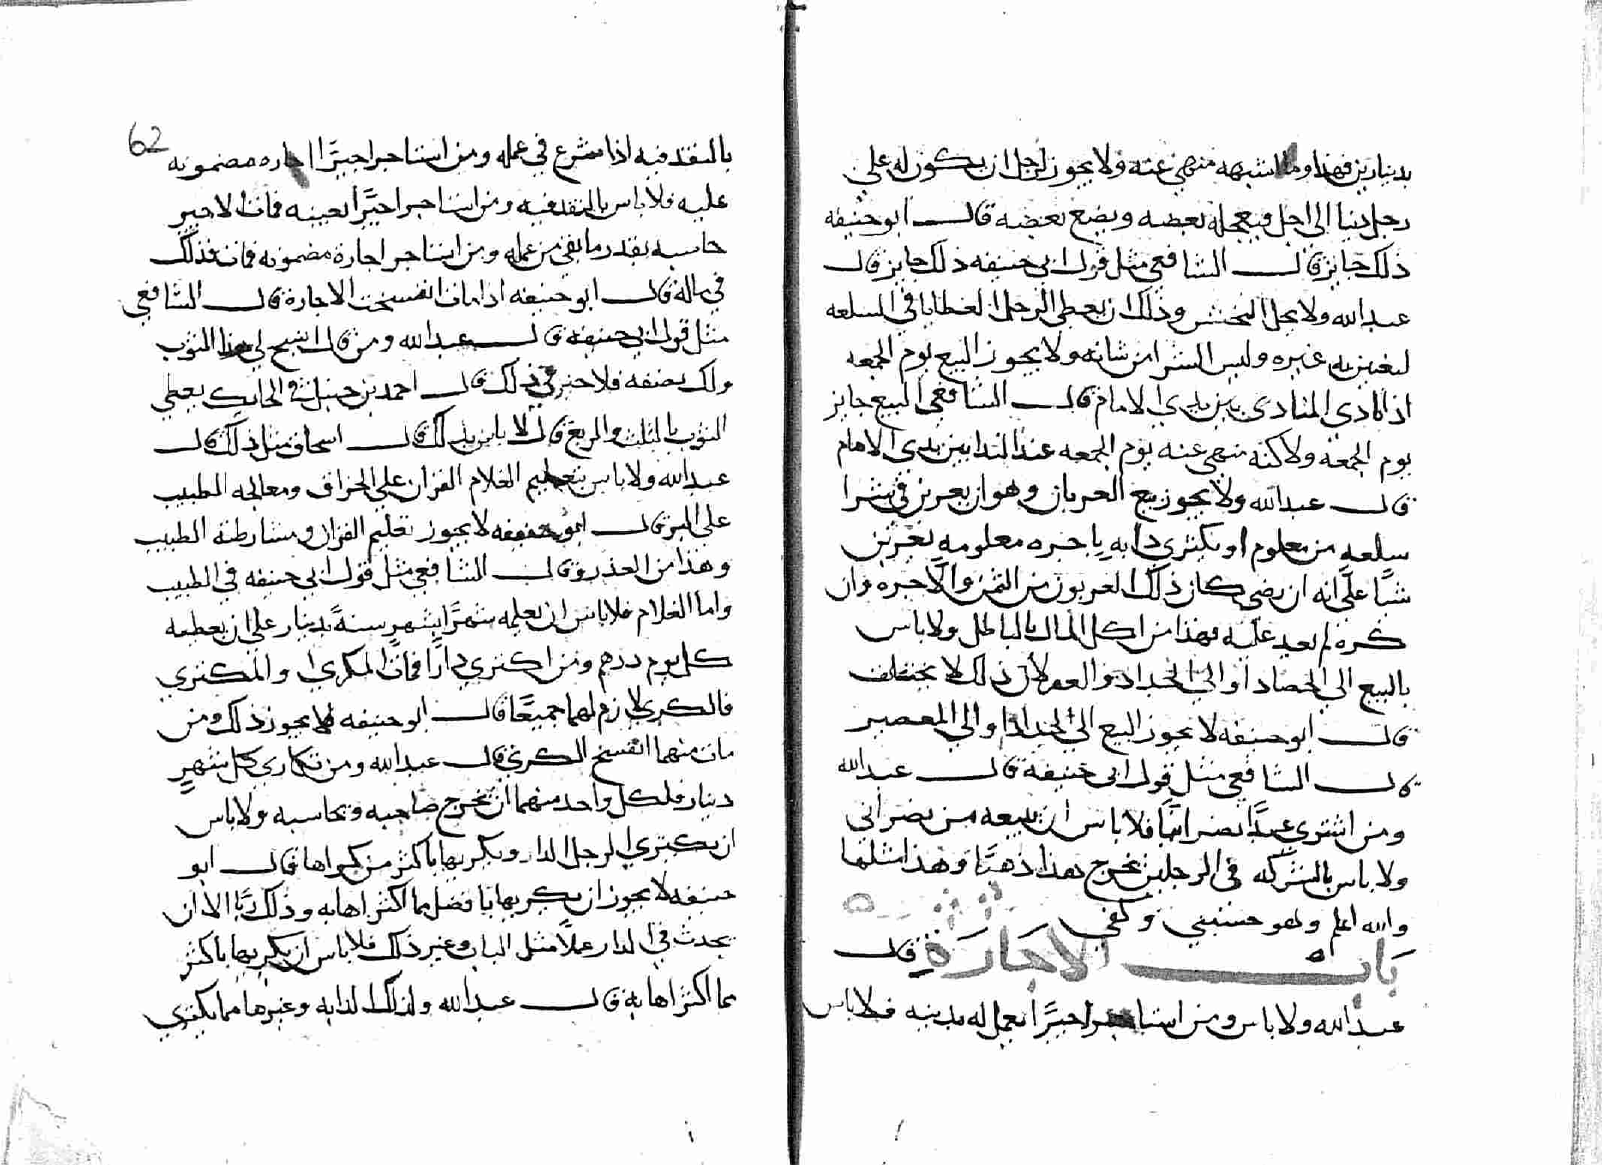 بدينارين فهذا وما اشبهه منهي عنه ولا يجوز لرجل ان يكون له علي
رجل دينا الى اجل فيعجل له بعضه ويضع بعضه قال ابو حنيفه
ذلك جايز قال الشافعي مثل قول ابي حنيفه ذلك جايز قال
عبد الله ولا يحل النجش وذلك ان يعطي الرجل العطايا في السلعه
ليغتر به غيره وليس الشرا من شانه ولا يجوز البيع يوم الجمعه
اذا نادى المنادي بين يدي الامام قال الشافعي البيع جايز
يوم الجمعه ولاكنه منهي عنه يوم الجمعه عند الندا بين يدي الامام
قال عبد الله ولا يجوز بيع العربان وهو ان يعربن في شرا
سلعه من معلوم او يكتري دابه باجره معلومه يعربن
شيا على انه ان رضي كان ذلك العربون من الثمن والاجره وان
كره لم يعد عليه فهذا من اكل المال بالباطل ولا باس
بالبيع الى الحصاد او الى الجداد والعصر لان ذلك لا يختلف
قال ابو حنيفه لا يجوز البيع الى الجداد والى المعصر
قال الشافعي مثل قول ابي حنيفة قال عبد الله
ومن اشترى عبدا نصرانيا فلا باس ان يبيعه من نصراني
ولا باس بالشركه في الرجلين يخرج هذا ذهبا وهذا مثلها
والله اعلم وهو حسبي وكفى
باب الاجارة قال
عبد الله ولا باس ومن استاجر اجيرا يعمل له بدينه فلا باس
62
بالنقد فيه اذا شرع في عمله ومن استاجر اجيرا اجاره مضمونه
عليه فلا باس بالنقد فيه ومن استاجر اجيرا بعينه فمات الاجير
حاسبه بقدر ما بقي من عمله ومن استاجر اجارة مضمونه فمات فذلك
في ماله قال ابو حنيفه اذا مات انفسخت الاجارة قال الشافعي
مثل قول ابي حنيفه قال عبد الله ومن قال انسج لي هذا الثوب
ولك نصفه فلا خير في ذلك قال احمد بن حنبل في الحايك يعطي
الثوب بالثلث والربع قال لا باس بذلك قال اسحاق مثل ذلك قال
عبد الله ولا باس بتعليم الغلام القران على الحذاق ومعالجه الطبيب
على البر قال ابو حنيفه لا يجوز تعليم القران ومشارطة الطبيب
وهذا من العذر وقال الشافعي مثل قول ابي حنيفه في الطبيب
واما الغلام فلا باس ان يعلمه شهرا بشهر سنة بدينار على ان يعطيه
كل يوم درهم ومن اكتري دارا فمات المكري او المكتري
فالكري لازم لهما جميعا قال ابو حنيفه لا يجوز ذلك ومن
مات منهما انفسخ الكري قال عبد الله ومن تكارى كل شهر
دينار فلكل واحد منهما ان يخرج صاحبه ويحاسبه ولا باس
ان يكتري الرجل الدار ويكريها باكثر من كراها قال ابو
حنيفه لا يجوز ان يكريها با فضل مما اكتراها به وذلك ربا الا ان
يحدث في الدار علا مثل الباب وغير ذلك فلا باس ان يكريها باكثر
مما اكتراها به قال عبد الله ولذلك الدابه وغيرها مما يكترى